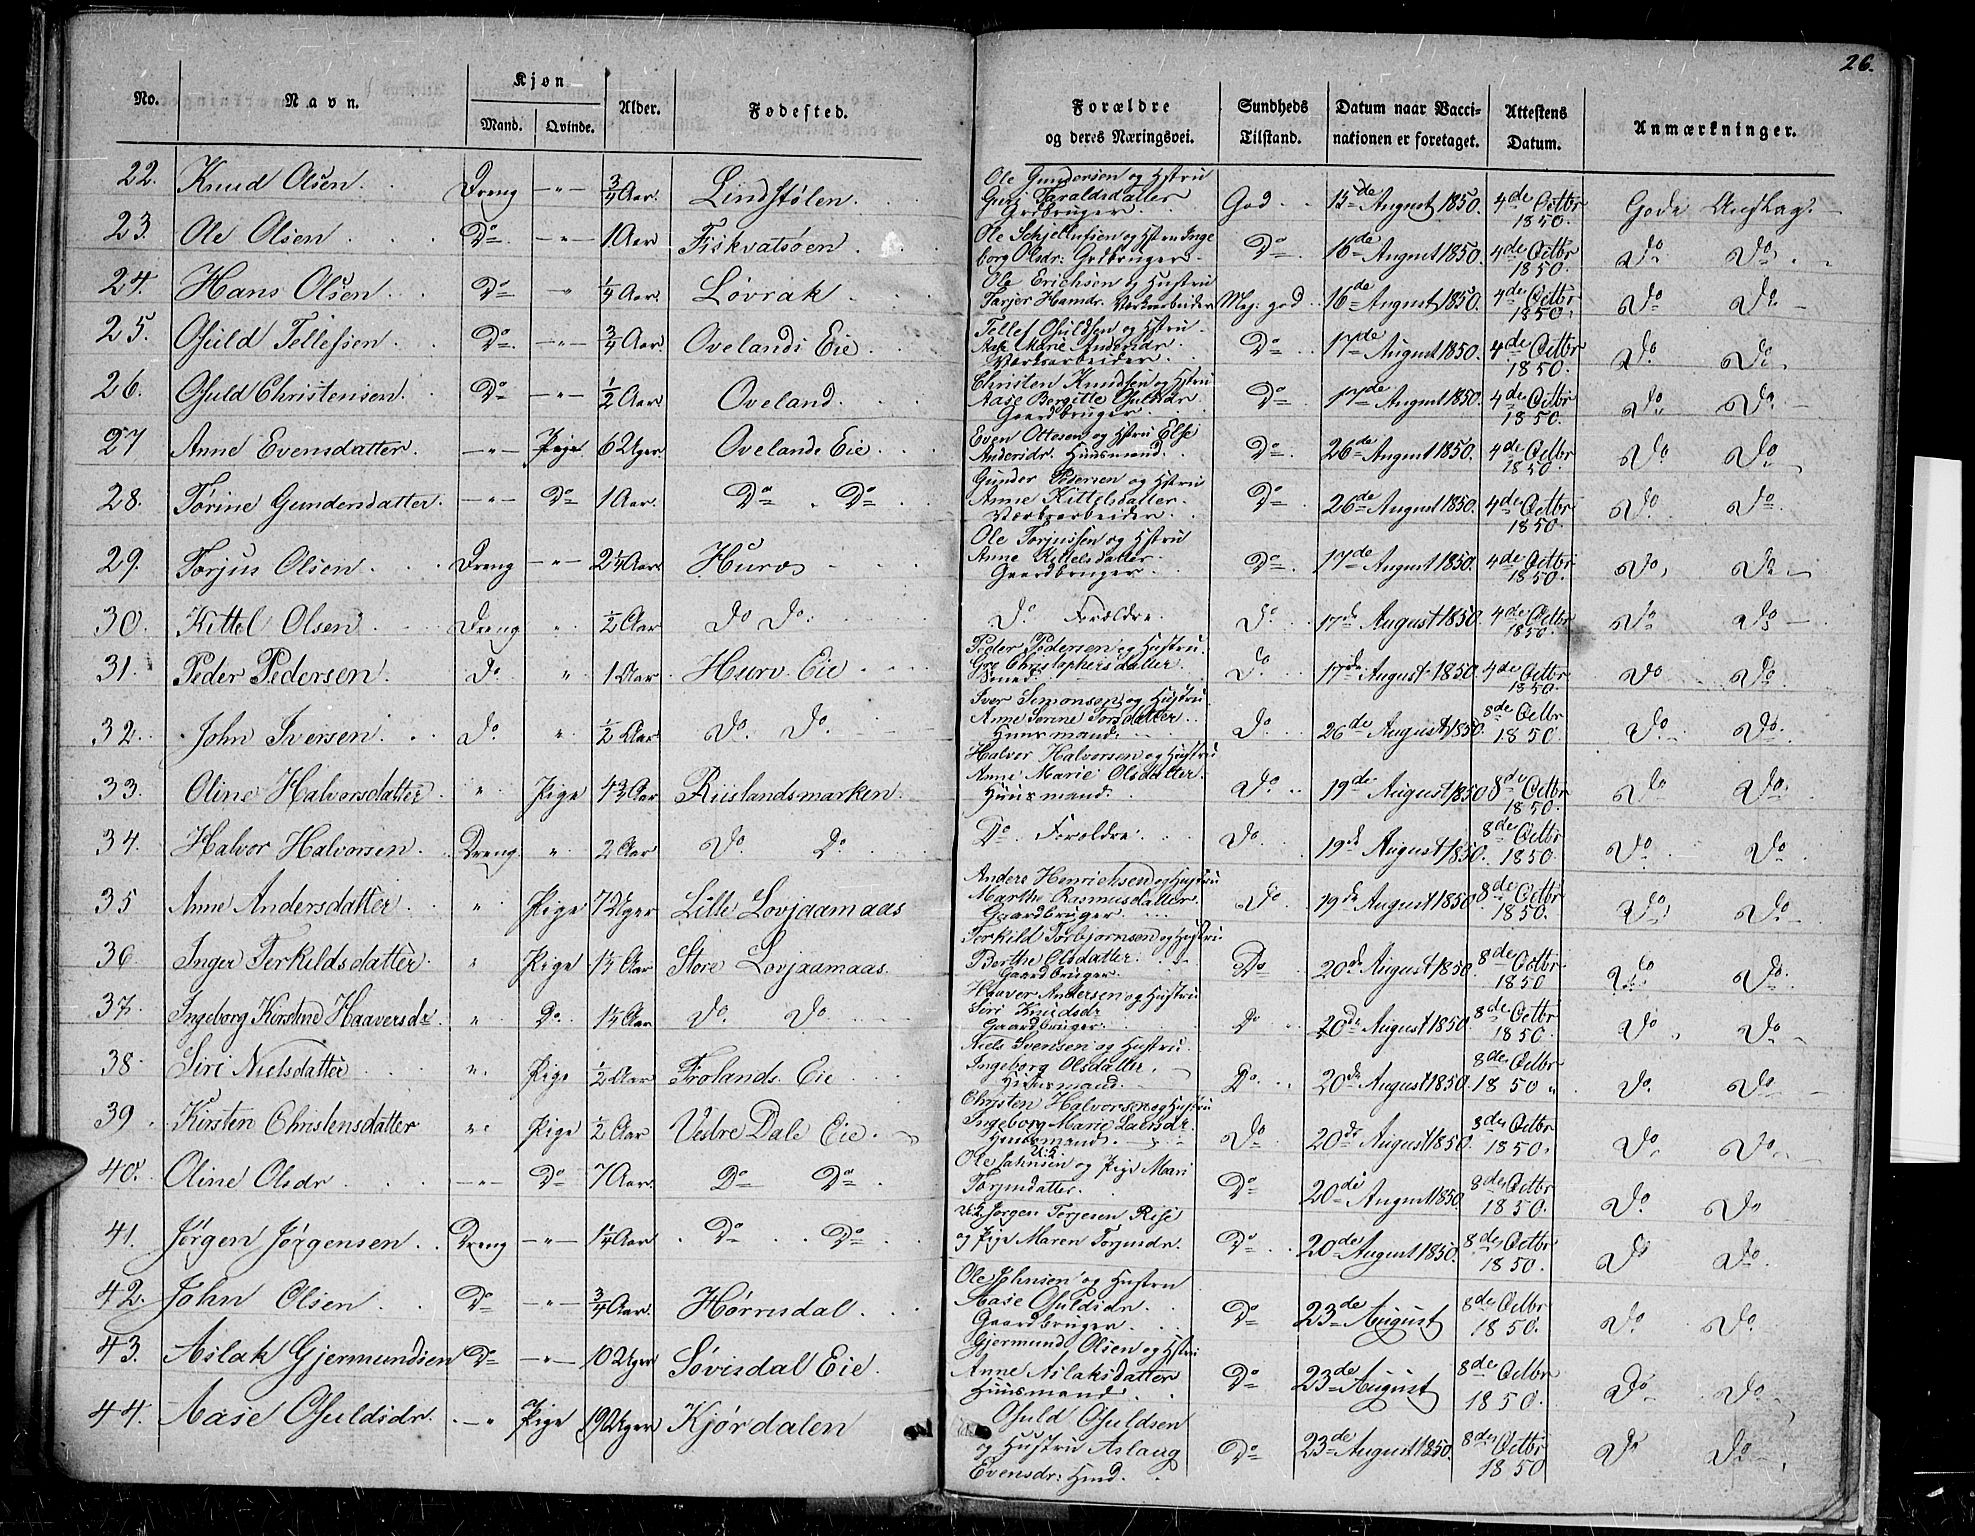 26.
No. Navn. Kjøn Mand. Qvinde. Alder. Fødested. Forældre og deres Næringsvei. Sundheds Tilstand. Datum naar Vaccinationen er foretaget. Attestens Datum. Anmærkninger.
22. Knud Olsen. Dreng — " — 3/4 Aar. Lindstølen. Ole Gundersen og Hstru Guri Taraldsdatter Grdbruger. God 15de August 1850. 4de Octbr 1850. Gode Anslag.
23. Ole Olsen Do — " — 1 Aar Fiskvatsøen. Ole Schjellufsen og Hstru Ingeborg Olsdr: Grdbruger. Do 16de August 1850. 4de Octbr 1850. Do Do
24. Hans Olsen. Do " 1/4 Aar. Løvrak Ole Erichsen og Hustru Tarjer Hansdr. Værksarbeider Meg: god 16de August 1850. 4de Octbr 1850. Do Do
25. Osuld Tellefsen. Do — " — 3/4 Aar. Ovelands Eie Tellef Osuldsen og Hstru Aase Marie Andersdr. Værksarbeider. Do 17de August 1850. 4de Octbr 1850. Do Do
26. Osuld Christensen. Do — " — 1/2 Aar Oveland. Christen Knudsen og Hstru Aase Bergitte Gaardbruger Do 17de August 1850. 4de Octbr 1850. Do Do
27 Anne Evensdatter. — " — Pige 6 Uger. Ovelands Eie Even Ottesen og Hstru Else Andersdr. Huusmand. Do 26de August 1850. 4de Octbr 1850. Do Do
28. Tørine Gundersdatter. — " — Do 1 Aar. Do Do Gunder Pedersen og Hstru Anne Kittelsdatter. Værksarbeider. Do 26de August 1850. 4de Octbr 1850. Do Do
29. Torjus Olsen. Dreng — " — 2 1/4 Aar. Hurv Ole Torjussen og Hstru Anne Kittelsdatter. Gaardbruger Do 17de August 1850. 4de Octbr 1850. Do Do
30. Kittel Olsen Dreng " 1/2 Aar Do Do Do Forældre. Do 17de August 1850. 4de Octbr 1850. Do Do
31. Peder Pedersen. Do " 1 Aar Hurv Eie Peder Pedersen og Hustru. Gro Christophersdatter. Smed. Do 17de August 1850. 4de Octbr 1850. Do Do
32. John Iversen. Do " 1/2 Aar Do Do Iver Simonsen og Hustru Anne Sørine Torsdatter. Huusmand. Do 26de August 1850. 8de Octbr 1850. Do Do
33. Oline Halvorsdatter " Pige 4 3/4 Aar Riislandsmarken. Halvor Halvorsen og Hustru Anne Marie Olsdatter. Huusmand. Do 19de August 1850 8de Octbr 1850. Do Do
34. Halvor Halvorsen. Dreng " 2 Aar Do Do Do Forældre. Do 19de August 1850. 8de Octbr 1850. Do Do
35 Anne Andersdatter " Pige 7 Uger Lille Lovjaamaas Anders Henrichsen og Hustru Marthe Rasmusdatter. Gaardbruger. Do 19de August 1850 8de Octbr 1850. Do Do
36 Inger Terkildsdatter. " Pige 1 1/2 Aar Store Lovjaamaas. Terkild Torbjørnsen og Hustru Berthe Olsdatter. Gaardbruger. Do 20de August 1850. 8de Octbr 1850 Do Do
37. Ingeborg Kirstine Haaversdr " Do 1 1/2 Aar Do Do Haaver Andersen og Hustru Siri Knudsdr Gaardbruger Do 20de August 1850. 8de Octbr 1850. Do Do
38 Siri Nielsdatter " Pige 1/2 Aar Frolands Eie Niels Svensen og Hustru Ingeborg Olsdatter. Huusmand. Do 20de August 1850. 8de Octbr 1850 Do Do
39 Kirsten Christensdatter " Pige 1/2 Aar Vestre Dale Eie. Christen Halvorsen og Hustru Ingeborg Marie Larsdr. Huusmand. Do 20de August 1850. 8de Octbr 1850. Do Do
40. Oline Olsdr — " — Do 7 Aar. Do Do Ole Jahnsen og Pige Mari Torjusdatter. Do 20de August 1850. 8de Octbr 1850. Do Do
41. Jørgen Jørgensen. Dreng — " — 1 1/4 Aar. Do Do Jørgen Terjesen Rise og Pige Maren Torjusdr. Do 20de August 1850. 8de Octbr 1850. Do Do
42. John Olsen Do — " — 3/4 Aar. Hørrisdal Ole Johnsen og Hustru Aase Osuldsdr Gaardbruger Do 23de August 8de Octbr 1850. Do Do
43. Aslak Gjermundsen Do — " — 10 Uger Søvisdal Eie. Gjermund Olsen og Hstru Anne Aslaksdatter Huusmand Do 23de August 8de Octbr 1850. Do Do
44. Aase Osuldsdr. — " Pige 19 Uger Kjørdalen Osuld Osuldsen og Hustru Aslaug Evensdr: Hmd. Do 23de August 1850. 8de Octbr 1850 Do Do